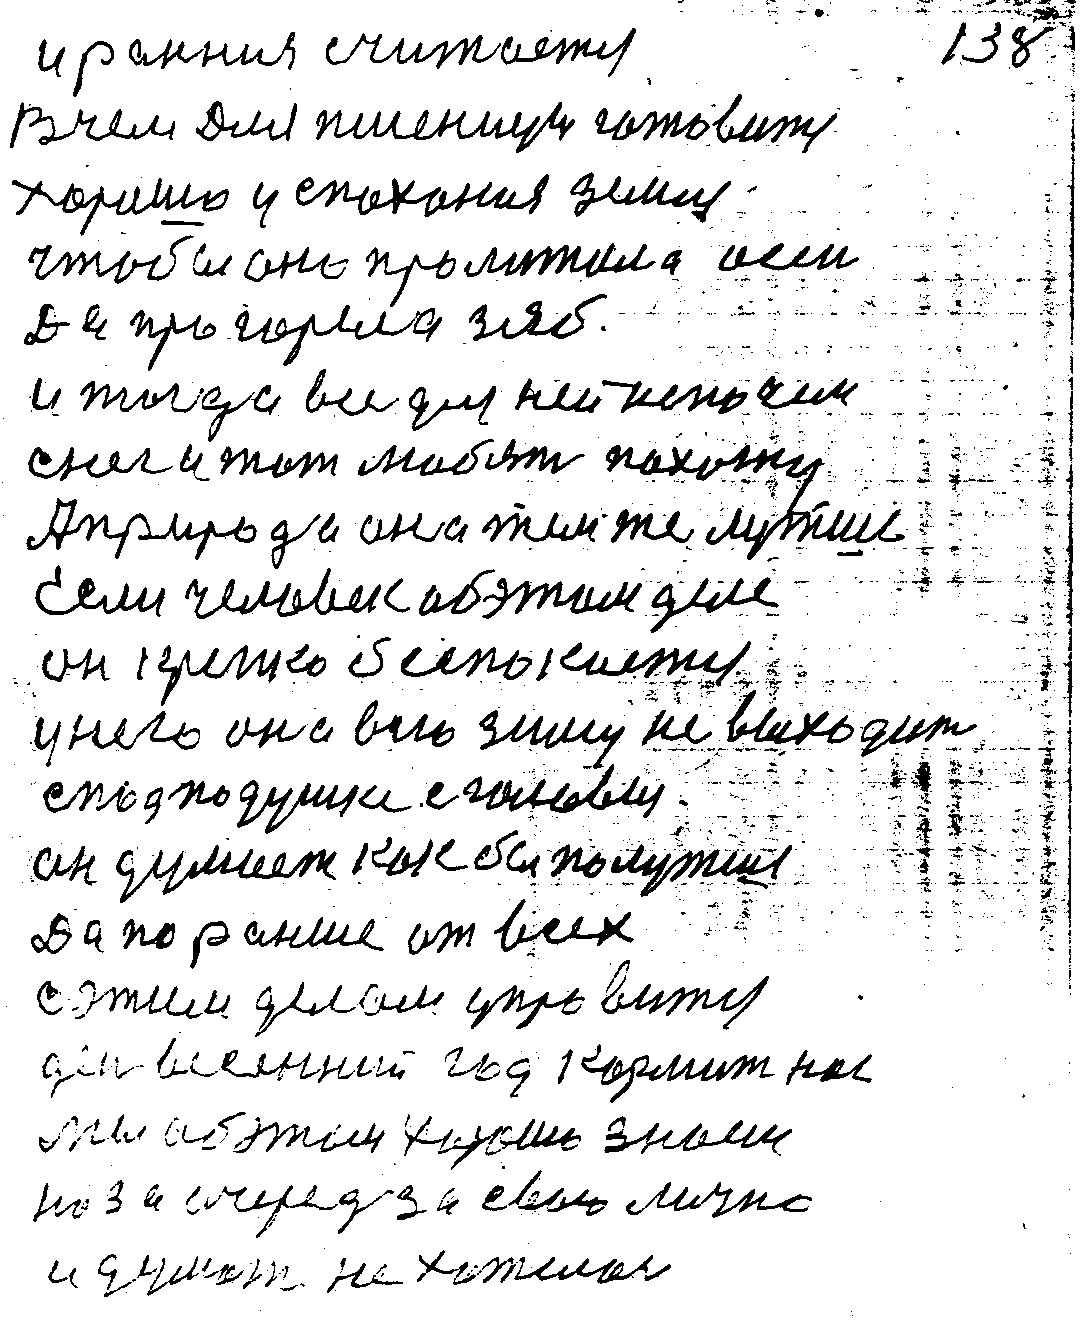 138
и рання считаетсу
В чем Для пшеницы готовитсу
хорошо успохоная земли
чтобы оно пролитала осен
Да прогорела зяб.
и тогда все для ней не по чем
снег и тот любят похотку
А природа она тем же лутше
Если человек об этом деле
он крепко беспокоетсу
у него она всю зиму не выходит
спод подушке с головы
он думает как бы полутше
Да поранше от всех
с этим делом управитсу
ден весенний год кормит нас
мы об этом хорошо знаем
но за очеред за свою лично
и думат не хотелос